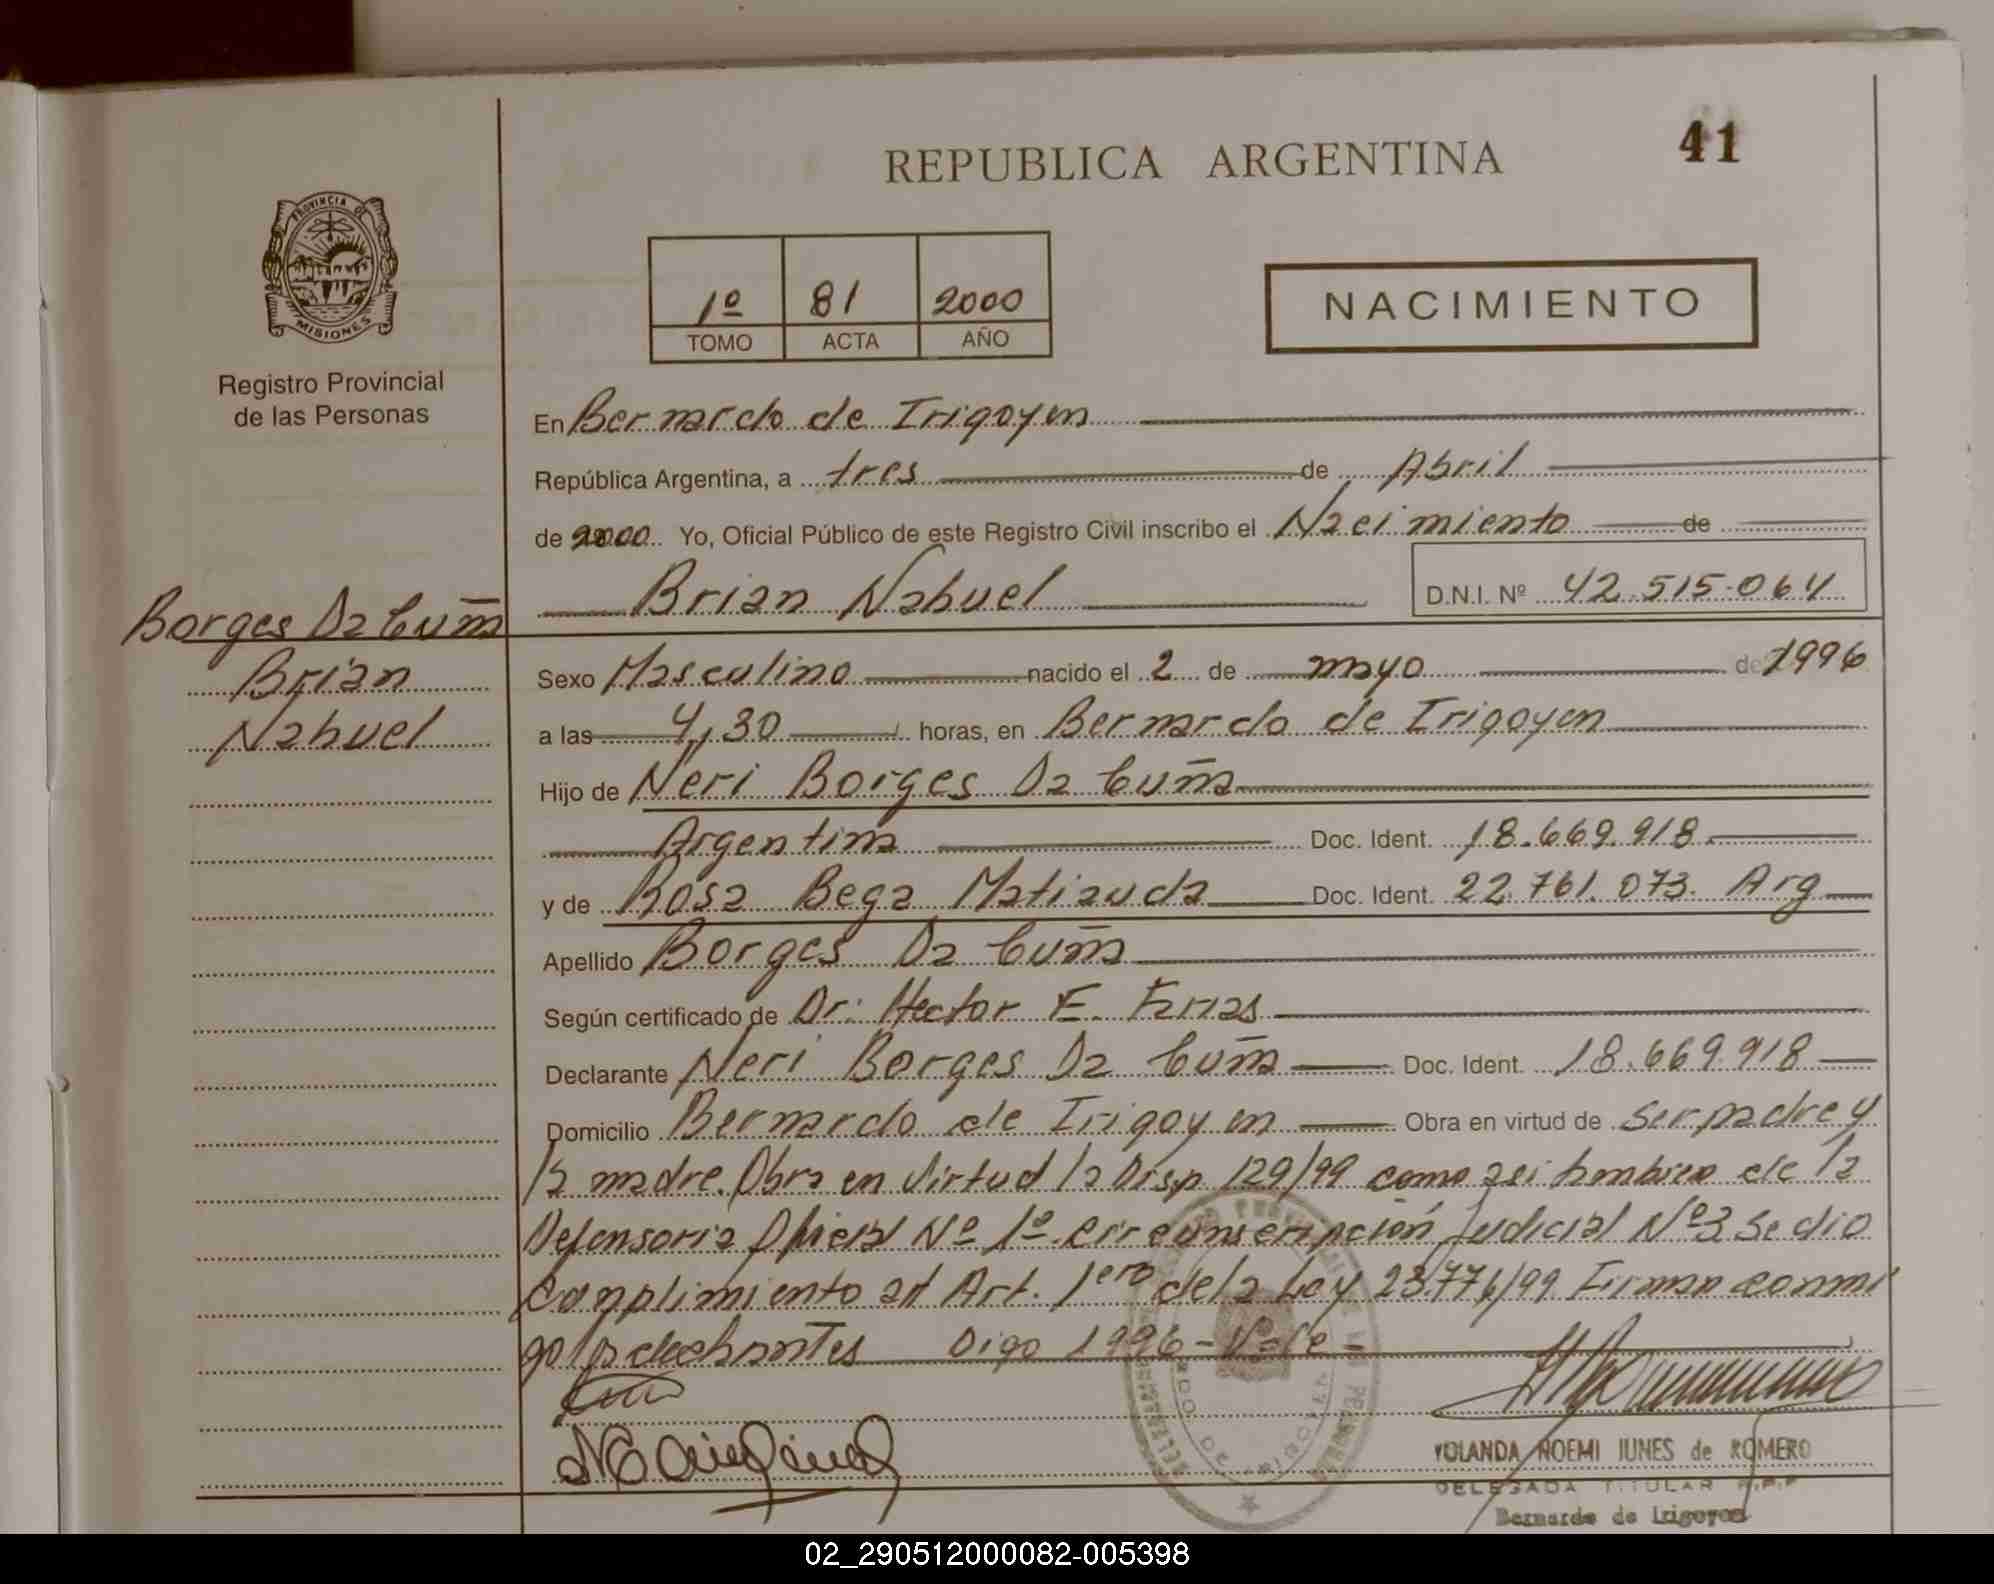 41
REPUBLICA ARGENTINA
PROVINCIA DE
MISIONES
Registro Provincial
de las Personas
1º 81 2000
TOMO ACTA AÑO
NACIMIENTO
En Bernardo de Irigoyen
República Argentina, a tres de Abril
de 2000 Yo, Oficial Público de este Registro Civil inscribo el Nacimiento de
Brian Nahuel D.N.I. Nº 42.515.064
Borges Da Cuña
Brian
Nahuel
Sexo Masculino nacido el 2 de mayo de 1996
a las 4,30 horas, en Bernardo de Irigoyen
Hijo de Neri Borges Da Cuña
Argentina Doc. Ident. 18.669.918
y de Rosa Bega Matiauda Doc. Ident. 22.761.073. Arg
Apellido Borges Da Cuña
Según certificado de Dr. Hector E. Farias
Declarante Neri Borges Da Cuña Doc. Ident. 18.669.918
Domicilio Bernardo de Irigoyen Obra en virtud de ser padre y
la madre. Obra en Virtud la Disp 129/99 como asi tambien de la
Defensoria Oficial Nº 1º circunscripción Judicial Nº 3 se dio
Cumplimiento al Art. 1ero de la Ley 23.776/99 Firman conmi
go declarantes Digo 1996 - Vale
YOLANDA NOEMI IUNES de ROMERO
DELEGADA TITULAR R.P.P
Bernardo de Irigoyen
02_290512000082-005398